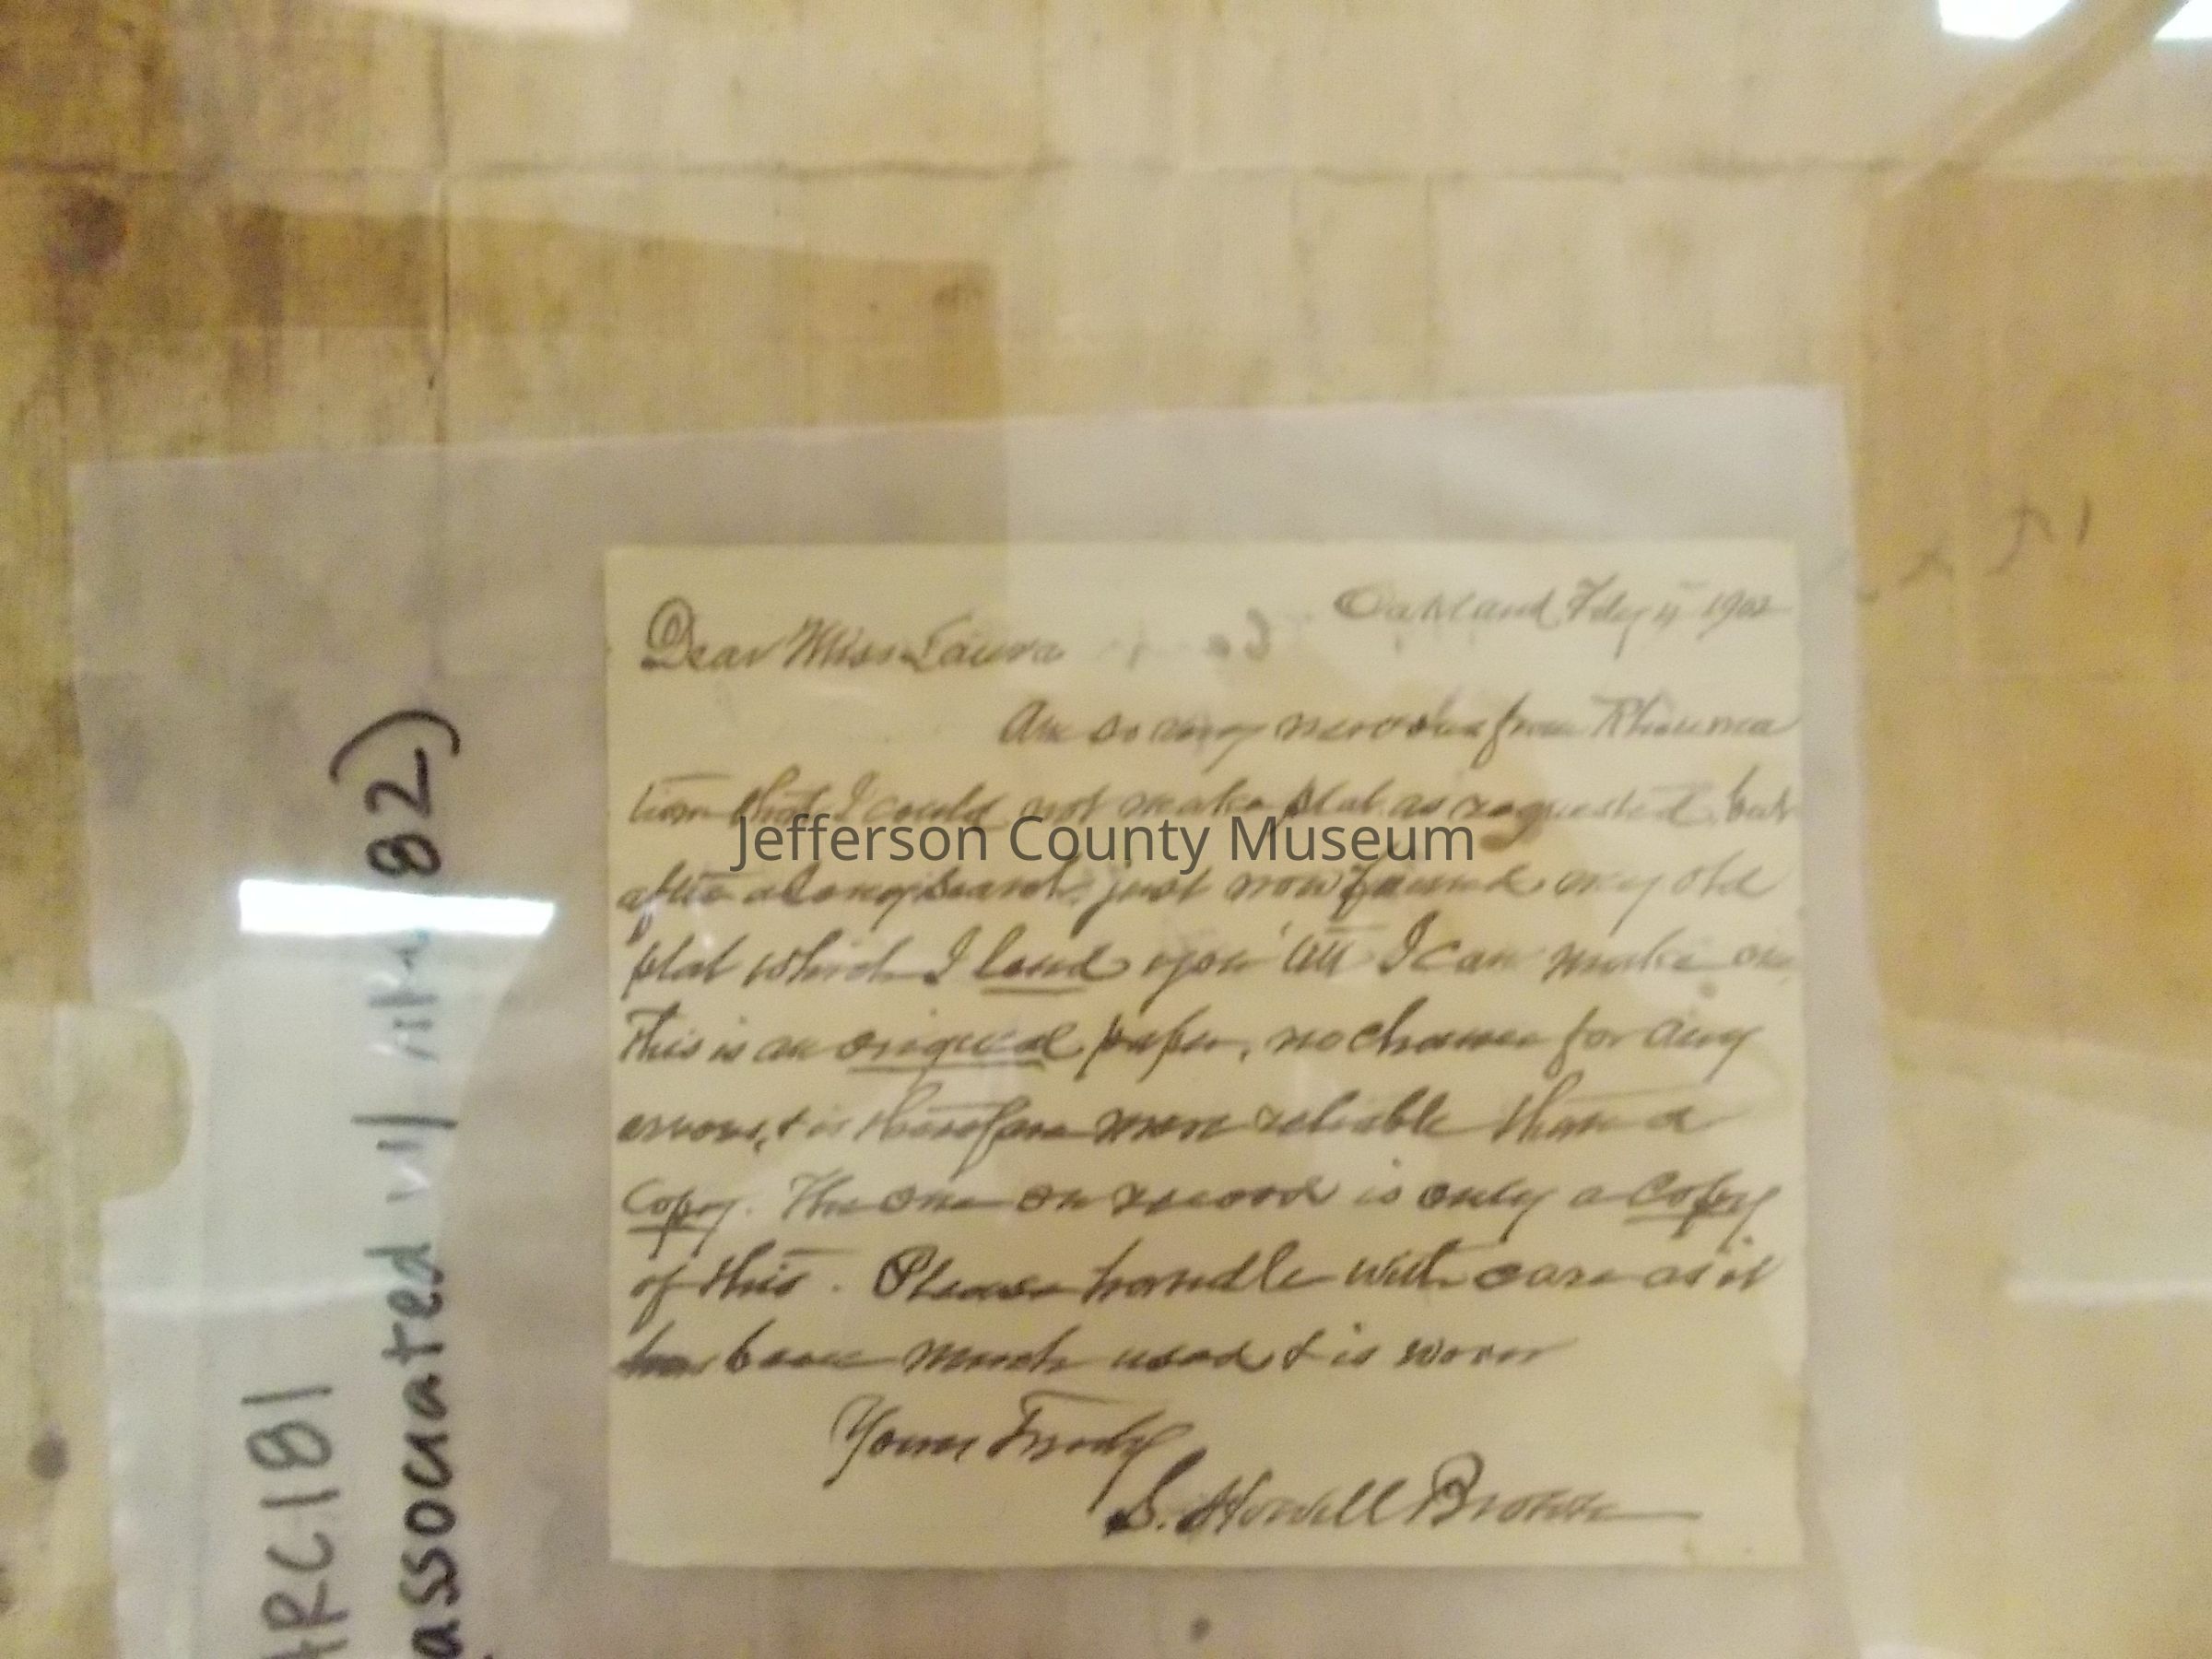 Oakland Feby 4" 1902
Dear Miss Laura
Am so very nervous from Rheuma
tism that I could not make plat as requested, but
after a long search, just now found my old
plat which I lend you 'till I can make one
This is an original paper, no chance for any
errors, & is therefore more reliable than a
Copy. The one on record is only a Copy
of this. Please handle with care as it
has been much used & is worn
Yours Truly
S. Howell Brown
Jefferson County Museum
ARC181
associated w/ 82)